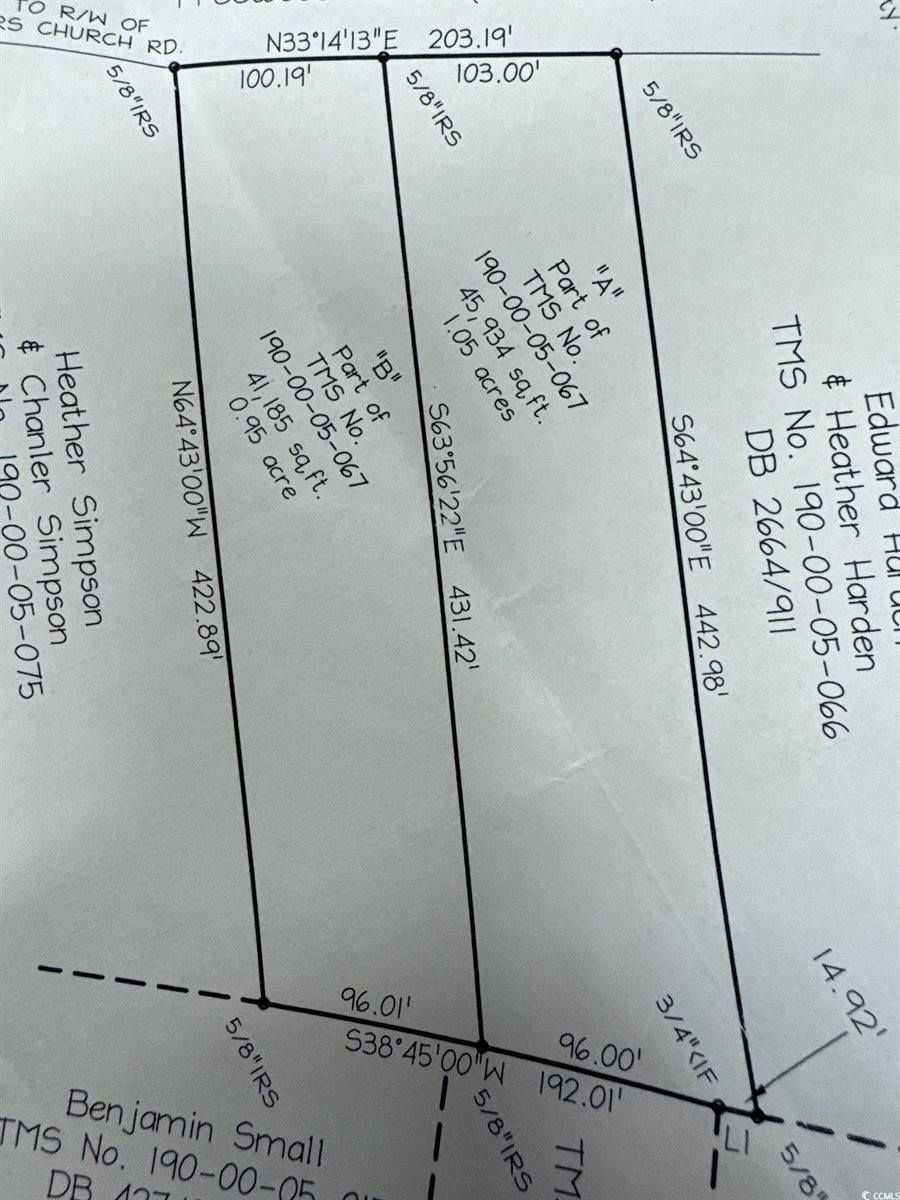 TO R/W OF
RS CHURCH RD.
N33°14'13"E 203.19'
100.19'
103.00'
5/8"IRS
5/8"IRS
5/8"IRS
"A"
Part of
TMS No.
190-00-05-067
45,934 sq.ft.
1.05 acres
"B"
Part of
TMS No.
190-00-05-067
41,185 sq.ft.
0.95 acre
N64°43'00"W 422.89'
S63°56'22"E 431.42'
S64°43'00"E 442.98'
Heather Simpson
& Chanler Simpson
190-00-05-075
Edward
& Heather Harden
TMS No. 190-00-05-066
DB 2664/911
14.92'
96.01'
S38°45'00"W
96.00'
192.01'
3/4"<IF
L1
5/8"IRS
5/8"IRS
5/8"
Benjamin Small
TMS No. 190-00-05
DB
TM
© CCMLS